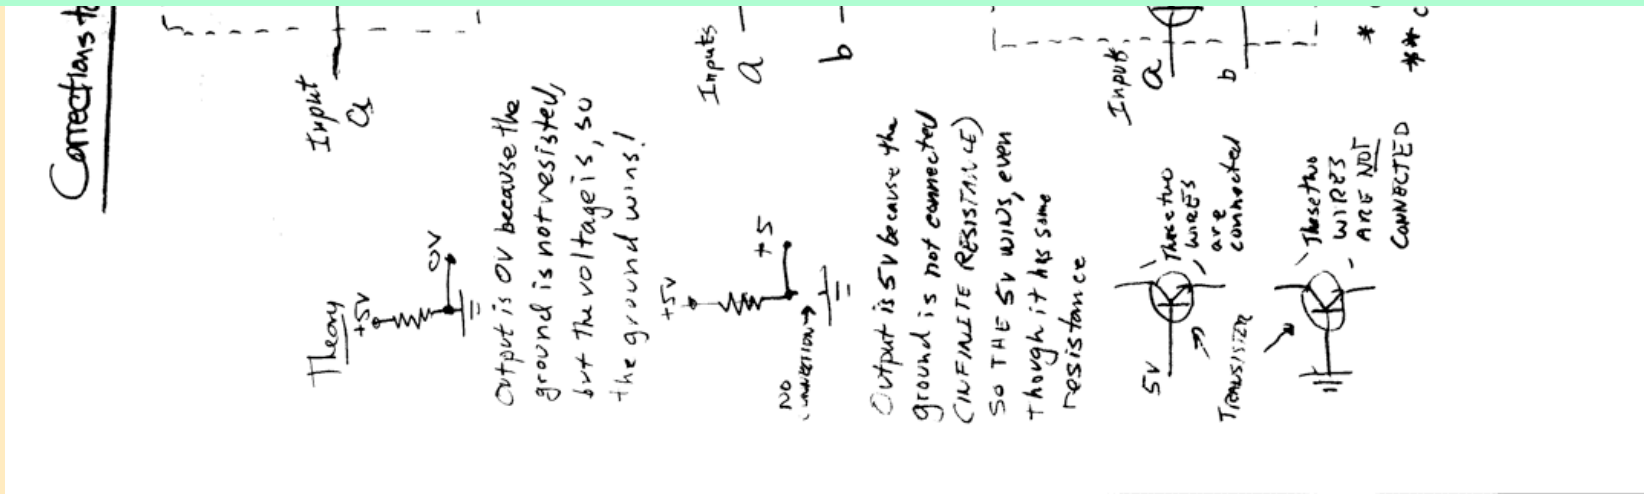 Corrections to
Input
a
Inputs
a
b
Inputs
a
b
*
**
Theory
+5V
0V
Output is 0V because the
ground is not resisted,
but the voltage is, so
the ground wins!
+5V
+5
NO
CONNECTION
Output is 5V because the
ground is not connected
(INFINITE RESISTANCE)
SO THE 5V WINS, even
though it has some
resistance
5V
These two
WIRES
are
connected
TRANSISTER
These two
WIRES
ARE NOT
CONNECTED